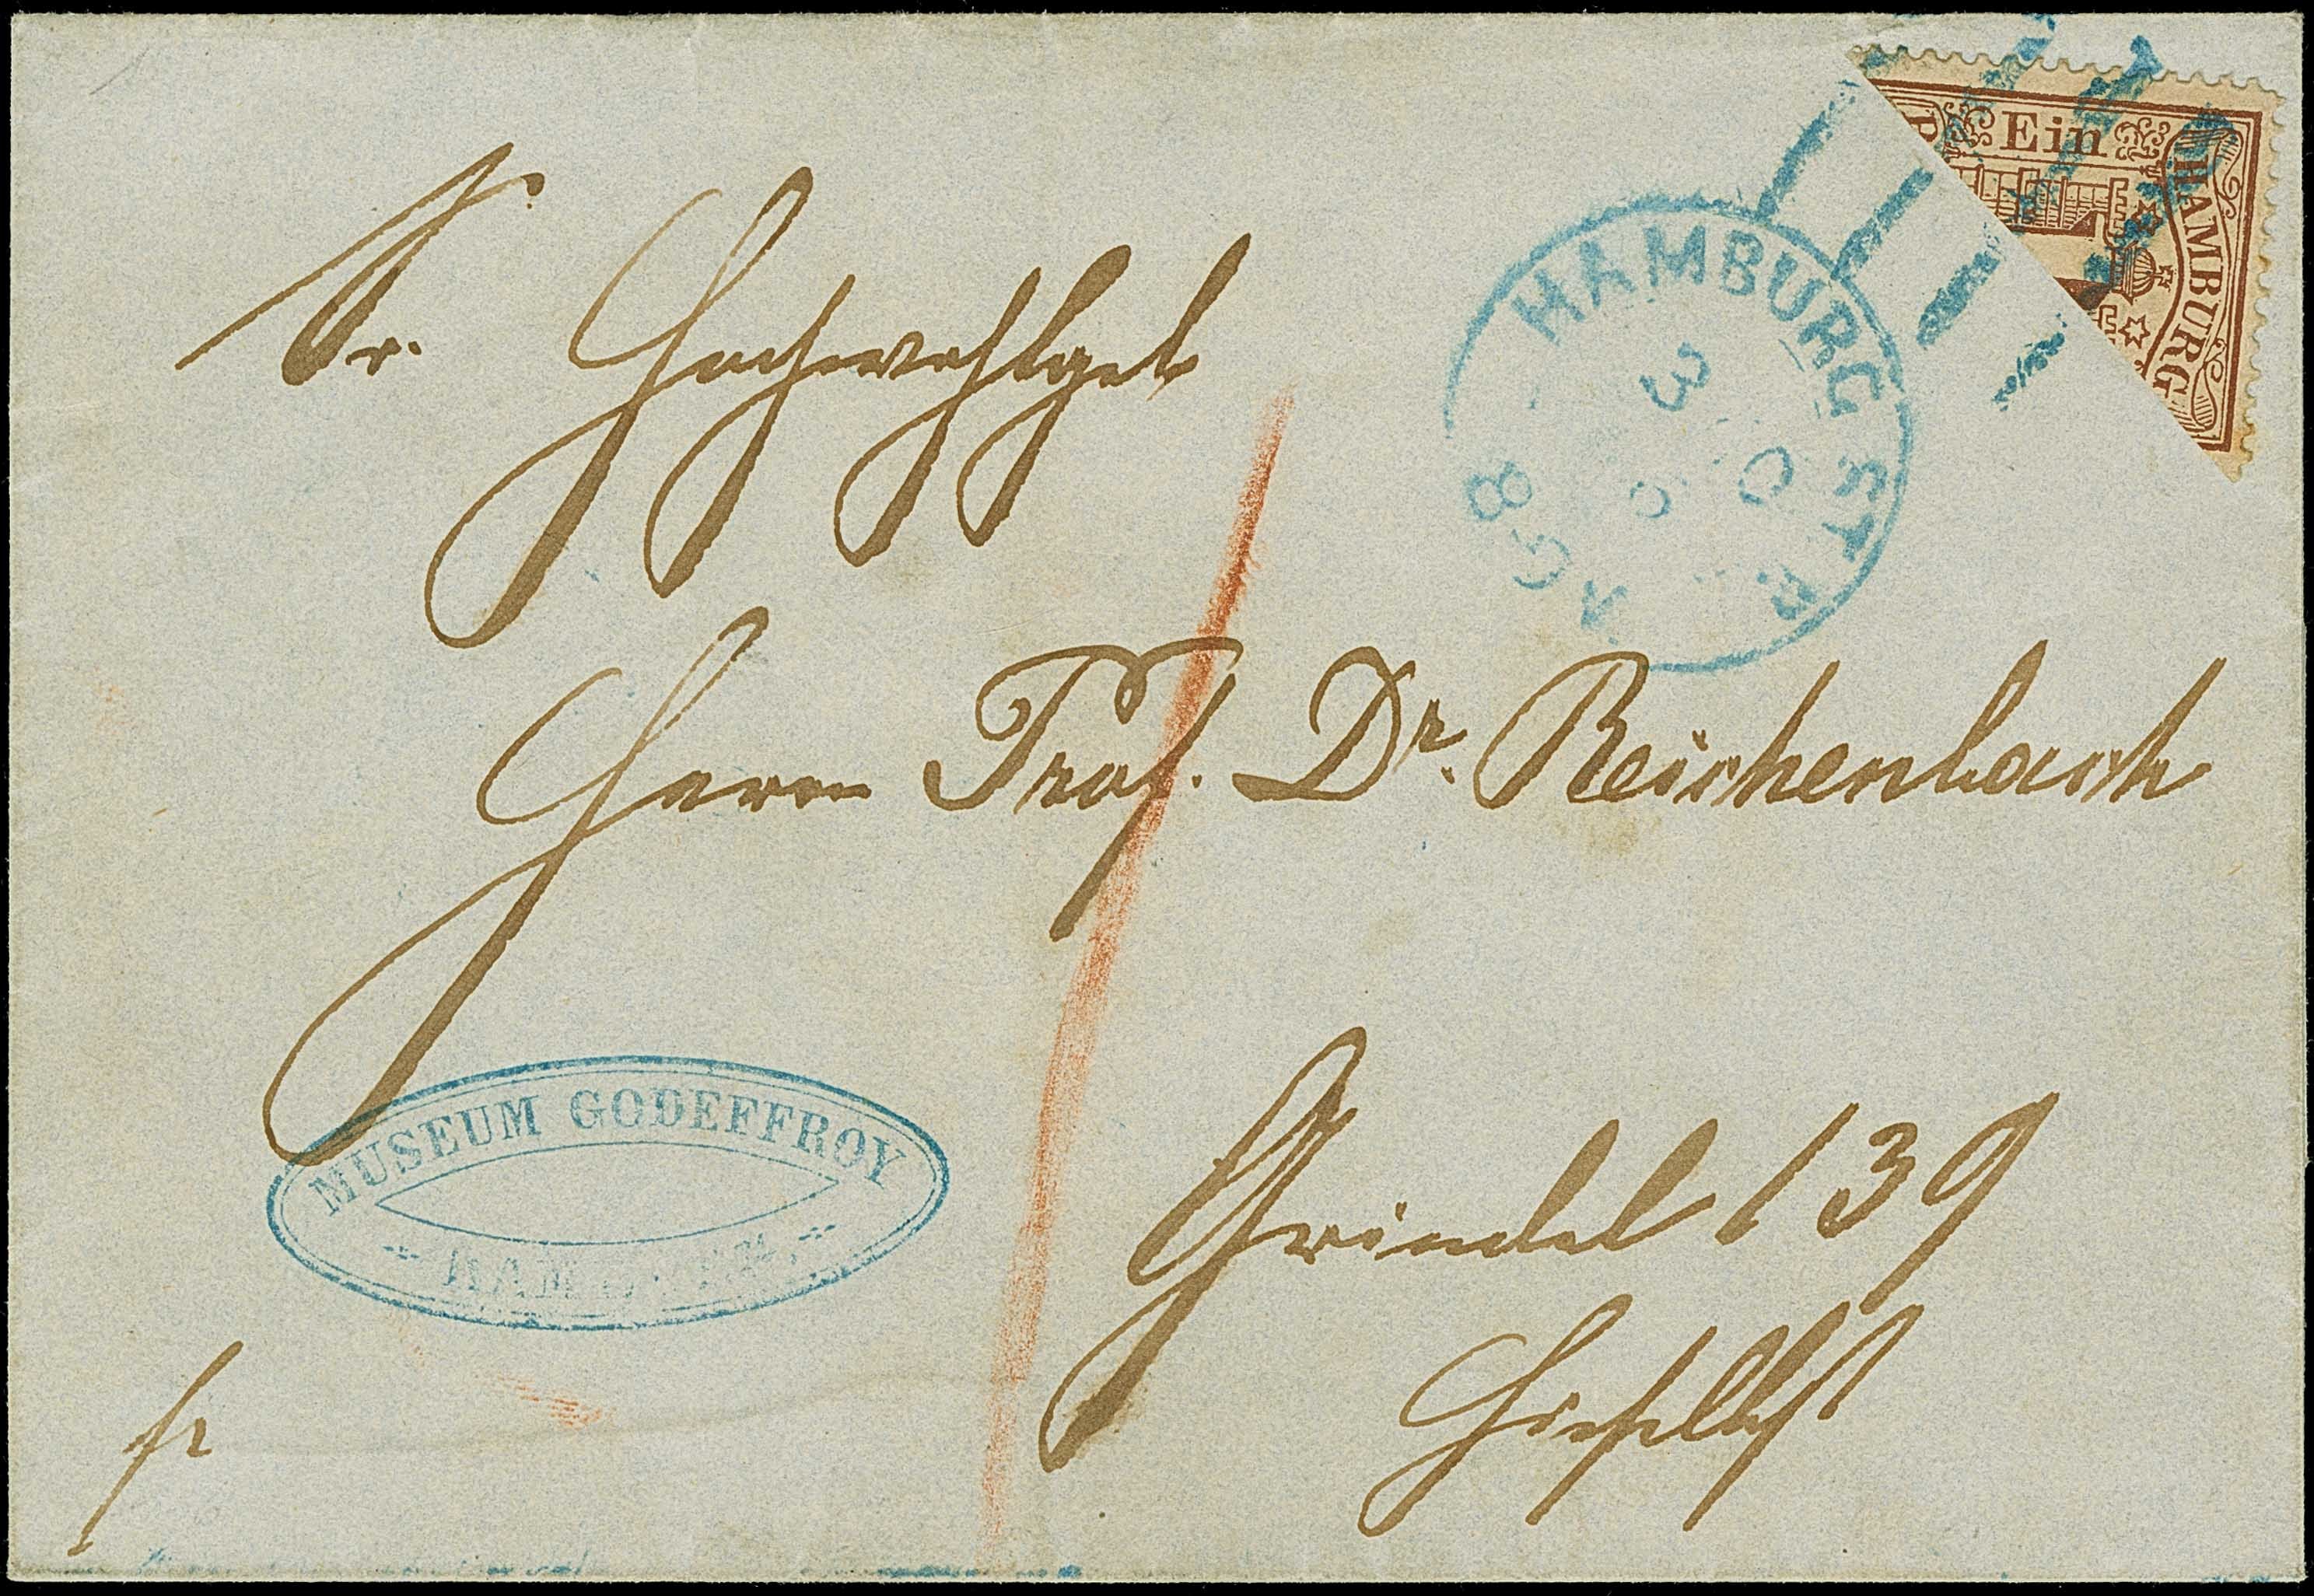 Ein
HAMBURG
HAMBURG ST. P.
3
Sr. Hochwohlgeb
Herrn Prof. Dr. Reichenbach
MUSEUM GODEFFROY
HAMBURG.
Grindel 139
Hieselbst
fr